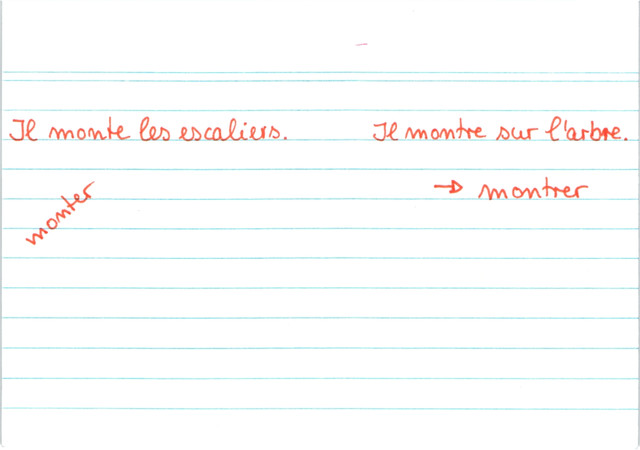 Il monte les escaliers.
Il montre sur l'arbre.
→ montrer
monter